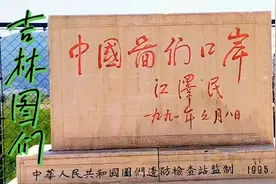 吉林图们
中國圖们口岸
江澤民
一九九一年元月八日
中華人民共和國圖們邊防檢查站監制 1995